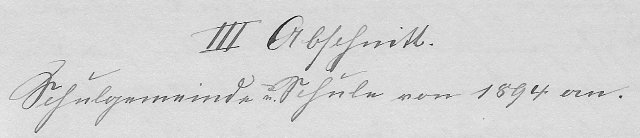 III Abschnitt.
Schulgemeinde u. Schule von 1894 an.